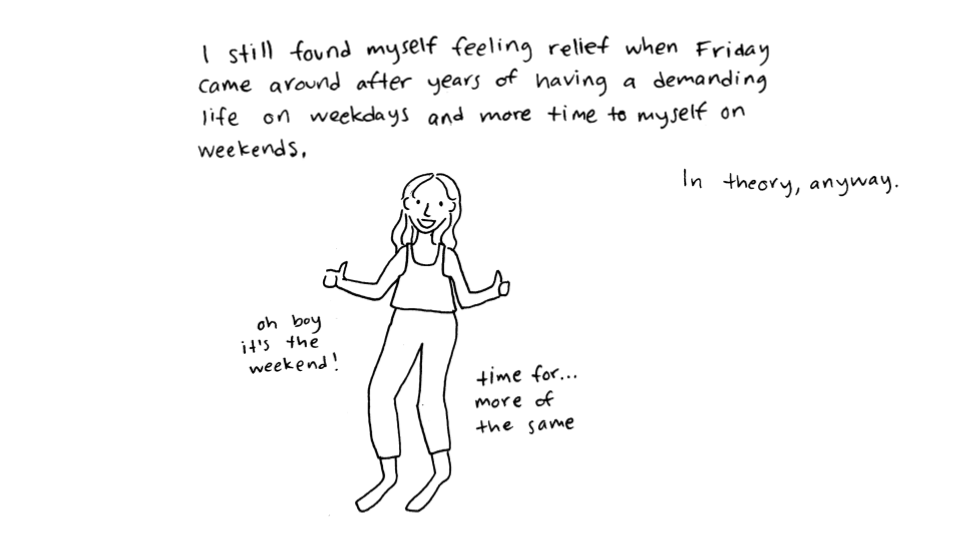 I still found myself feeling relief when Friday
came around after years of having a demanding
life on weekdays and more time to myself on
weekends.
In theory, anyway.
oh boy
it's the
weekend!
time for...
more of
the same